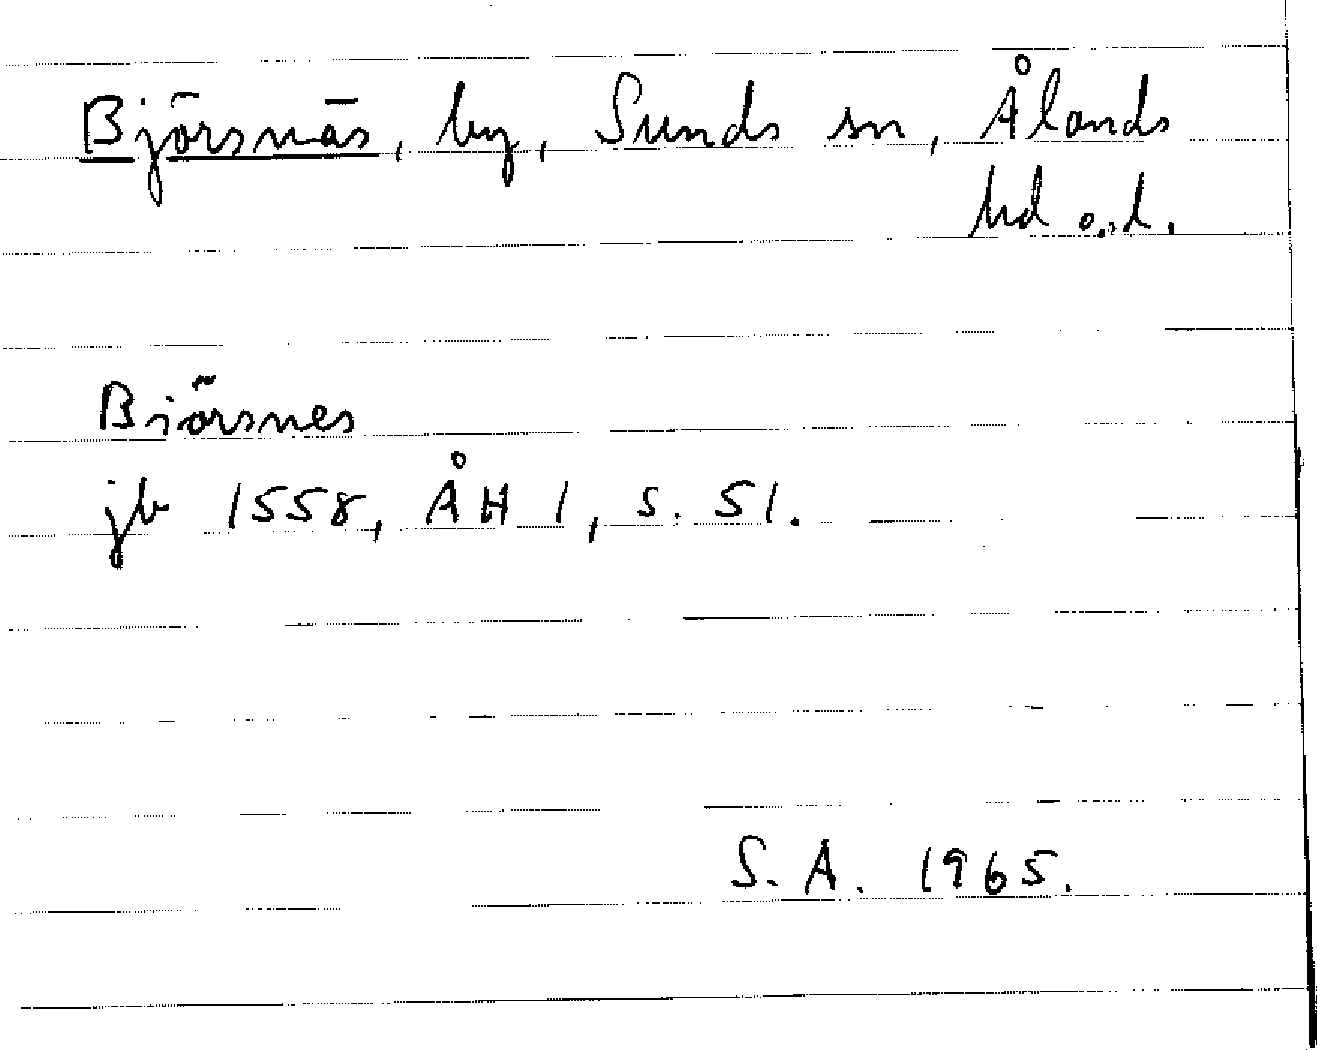 Björsnäs, by, Sunds sn, Ålands
hd o.l.
Biörsnes
jb 1558, ÅH 1, s. 51.
S. A. 1965.